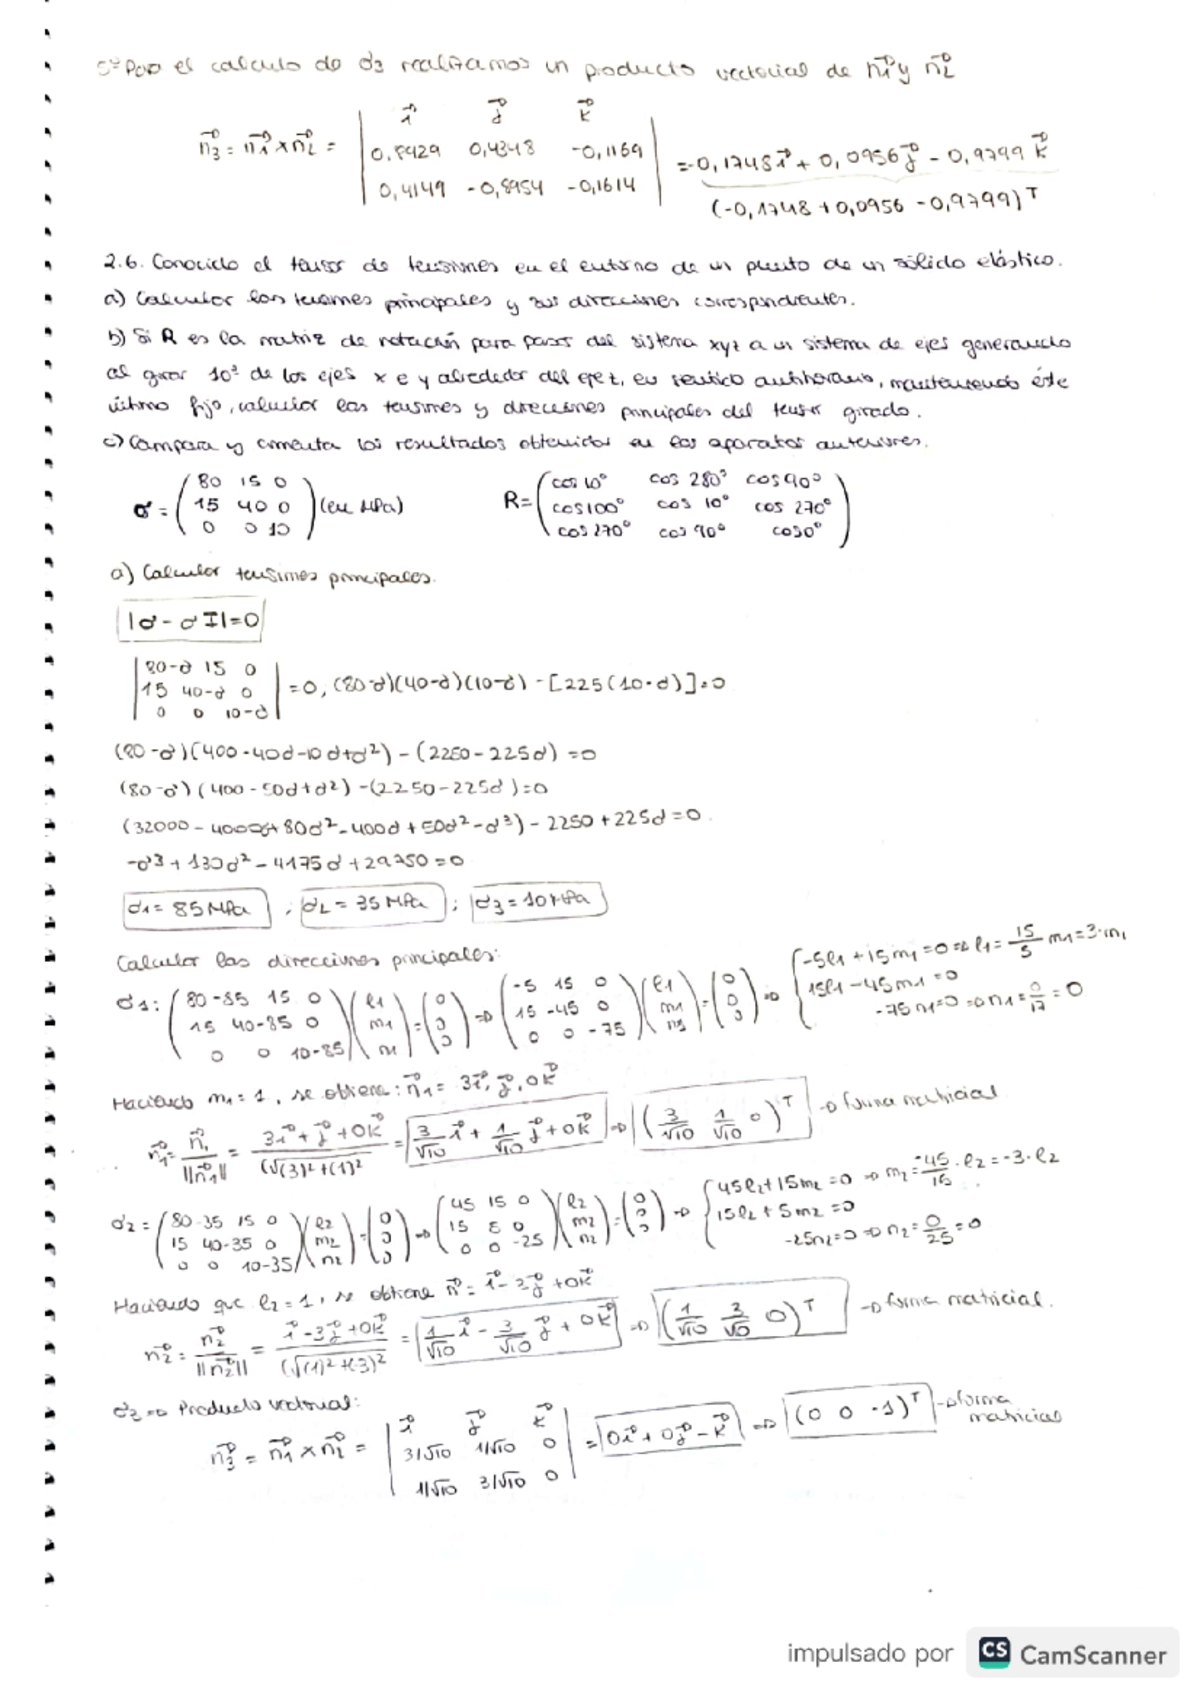 5º Para el calculo de σ3 realizamos un producto vectorial de n⃗1 y n⃗2
n⃗3 = n⃗1 x n⃗2 = | i⃗ j⃗ k⃗ |
| 0,8429 0,4348 -0,1169 |
| 0,4149 -0,8954 -0,1614 | = -0,1748 i⃗ + 0,0956 j⃗ - 0,9799 k⃗
(-0,1748 +0,0956 -0,9799)ᵀ
2.6. Conocido el tensor de tensiones en el entorno de un punto de un sólido elástico.
a) Calcular las tensiones principales y sus direcciones correspondientes.
b) Si R es la matriz de rotación para pasar del sistema xyz a un sistema de ejes generando
al girar 10º de los ejes x e y alrededor del eje z, en sentido antihorario, manteniendo éste
último fijo, calcular las tensiones y direcciones principales del tensor girado.
c) Compara y comenta los resultados obtenidos en los apartados anteriores.
σ = ( 80 15 0
15 40 0
0 0 10 ) (en MPa)
R = ( cos 10º cos 280º cos 90º
cos 100º cos 10º cos 270º
cos 270º cos 90º cos 0º )
a) Calcular tensiones principales.
|σ - σ I| = 0
| 80-σ 15 0 |
| 15 40-σ 0 |
| 0 0 10-σ | = 0, (80-σ)(40-σ)(10-σ) - [225(10-σ)] = 0
(80-σ)(400-40σ-10σ+σ²) - (2250-225σ) = 0
(80-σ)(400-50σ+σ²) - (2250-225σ) = 0
(32000 - 4000σ + 80σ² - 400σ + 50σ² - σ³) - 2250 + 225σ = 0.
-σ³ + 130σ² - 4175σ + 29750 = 0
σ1 = 85 MPa ; σ2 = 35 MPa ; σ3 = 10 MPa
Calcular las direcciones principales:
σ1: ( 80-85 15 0
15 40-85 0
0 0 10-85 ) ( l1 m1 n1 ) = ( 0 0 0 ) ⇒ ( -5 15 0
15 -45 0
0 0 -75 ) ( l1 m1 n1 ) = ( 0 0 0 ) ⇒ { -5l1 + 15m1 = 0 ⇒ l1 = 15/5 m1 = 3·m1
15l1 - 45m1 = 0
-75 n1 = 0 ⇒ n1 = 0/17 = 0
Haciendo m1 = 1, se obtiene: n⃗1 = 3i⃗, j⃗, 0k⃗
n⃗1 = n⃗1/||n⃗1|| = 3i⃗ + j⃗ + 0k⃗ / (√(3)²+(1)² = 3/√10 i⃗ + 1/√10 j⃗ + 0k⃗ ⇒ (3/√10 1/√10 0)ᵀ → forma matricial
σ2 = ( 80-35 15 0
15 40-35 0
0 0 10-35 ) ( l2 m2 n2 ) = ( 0 0 0 ) ⇒ ( 45 15 0
15 5 0
0 0 -25 ) ( l2 m2 n2 ) = ( 0 0 0 ) ⇒ { 45l2 + 15m2 = 0 ⇒ m2 = -45/15 · l2 = -3·l2
15l2 + 5m2 = 0
-25n2 = 0 ⇒ n2 = 0/25 = 0
Haciendo que l2 = 1, se obtiene n⃗ = i⃗ - 3j⃗ + 0k⃗
n⃗2 = n⃗2/||n⃗2|| = i⃗ - 3j⃗ + 0k⃗ / (√(1)²+(-3)² = 1/√10 i⃗ - 3/√10 j⃗ + 0k⃗ ⇒ (1/√10 3/√10 0)ᵀ → forma matricial.
σ3 ⇒ Producto vectorial:
n⃗3 = n⃗1 x n⃗2 = | i⃗ j⃗ k⃗ |
| 3/√10 1/√10 0 |
| 1/√10 3/√10 0 | = 0i⃗ + 0j⃗ - k⃗ ⇒ (0 0 -1)ᵀ → forma matricial
impulsado por CS CamScanner